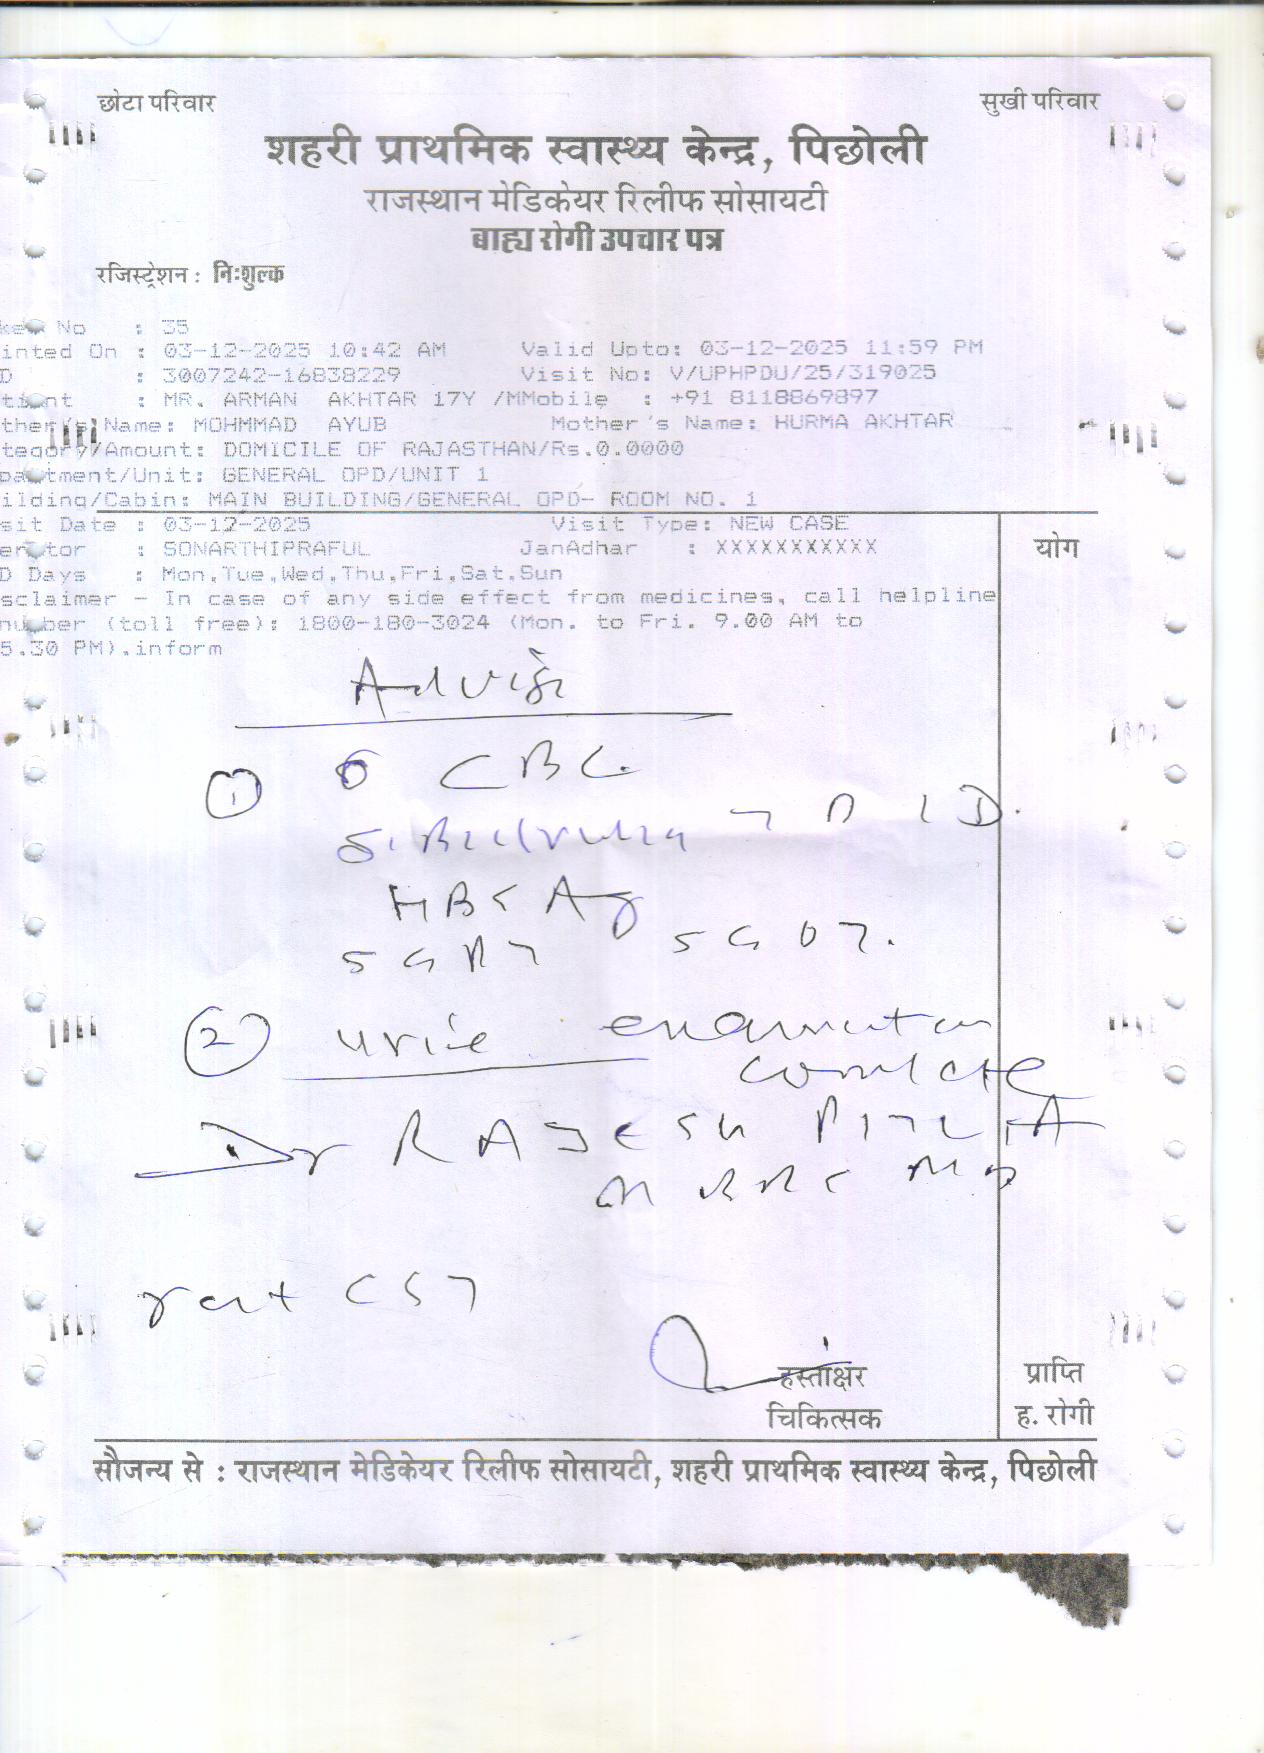 छोटा परिवार सुखी परिवार
शहरी प्राथमिक स्वास्थ्य केन्द्र, पिछोली
राजस्थान मेडिकेयर रिलीफ सोसायटी
बाह्य रोगी उपचार पत्र
रजिस्ट्रेशन : निःशुल्क
ken No : 35
inted On : 03-12-2025 10:42 AM Valid Upto: 03-12-2025 11:59 PM
D : 3007242-16838229 Visit No: V/UPHPDU/25/319025
tient : MR. ARMAN AKHTAR 17Y /MMobile : +91 8118869897
ther's Name: MOHMMAD AYUB Mother's Name: HURMA AKHTAR
tegory/Amount: DOMICILE OF RAJASTHAN/Rs.0.0000
partment/Unit: GENERAL OPD/UNIT 1
ilding/Cabin: MAIN BUILDING/GENERAL OPD- ROOM NO. 1
sit Date : 03-12-2025 Visit Type: NEW CASE
erator : SONARTHIPRAFUL JanAdhar : XXXXXXXXXXX
योग
D Days : Mon,Tue,Wed,Thu,Fri,Sat,Sun
sclaimer - In case of any side effect from medicines, call helpline
number (toll free): 1800-180-3024 (Mon. to Fri. 9.00 AM to
5.30 PM).inform
① CBC
HBsAg
SGPT SGOT.
② urine examination
complete
Dr RAJESH
हस्ताक्षर
चिकित्सक
प्राप्ति
ह. रोगी
सौजन्य से : राजस्थान मेडिकेयर रिलीफ सोसायटी, शहरी प्राथमिक स्वास्थ्य केन्द्र, पिछोली